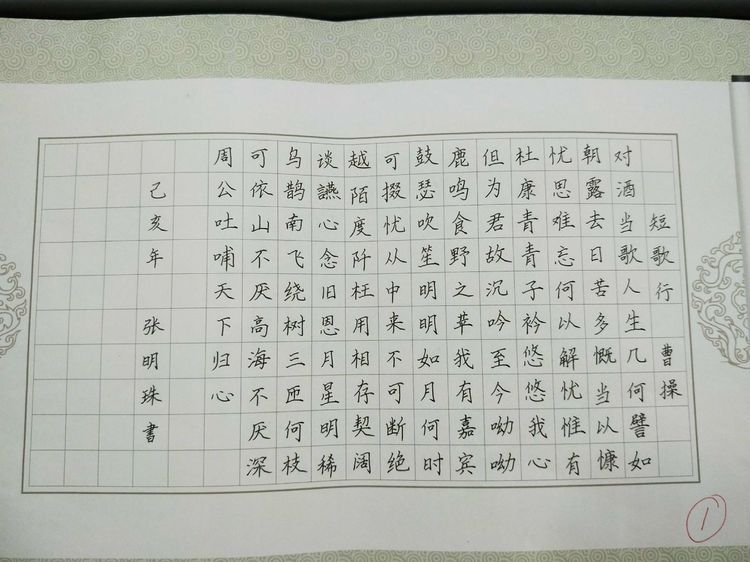 短歌行 曹操
对酒当歌人生几何譬如
朝露去日苦多慨当以慷
忧思难忘何以解忧惟有
杜康青青子衿悠悠我心
但为君故沉吟至今呦呦
鹿鸣食野之苹我有嘉宾
鼓瑟吹笙明明如月何时
可掇忧从中来不可断绝
越陌度阡枉用相存契阔
谈讌心念旧恩月星明稀
乌鹊南飞绕树三匝何枝
可依山不厌高海不厌深
周公吐哺天下归心
己亥年 张明珠書
1